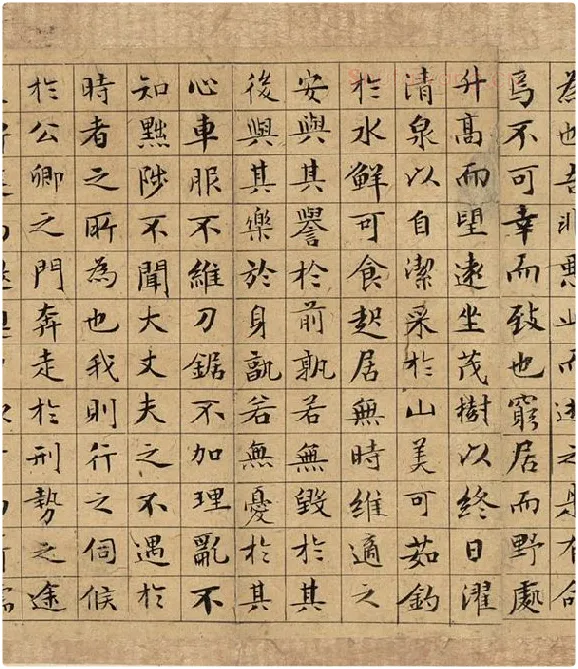 為也吾非惡此而逃之是有命
焉不可幸而致也窮居而野處
升高而望遠坐茂樹以終日濯
清泉以自潔采於山美可茹釣
於水鮮可食起居無時維適之
安與其譽於前孰若無毀於其
後與其樂於身孰若無憂於其
心車服不維刀鋸不加理亂不
知黜陟不聞大丈夫之不遇於
時者之所為也我則行之伺候
於公卿之門奔走於刑勢之途